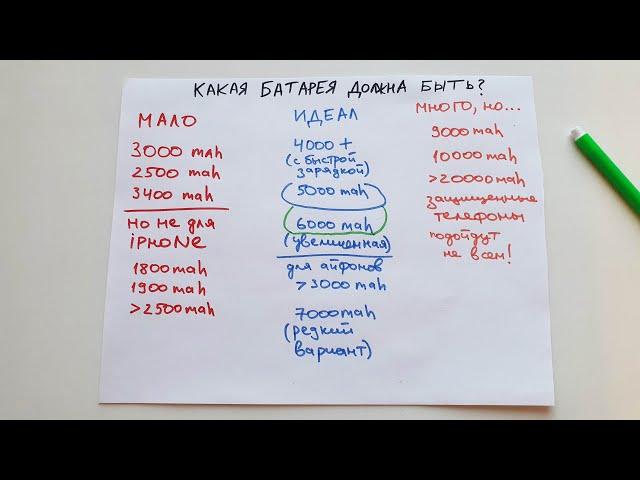 КАКАЯ БАТАРЕЯ ДОЛЖНА БЫТЬ?
МАЛО
3000 mah
2500 mah
3400 mah
но не для
iPHONE
1800 mah
1900 mah
>2500 mah
ИДЕАЛ
4000 +
(с быстрой
зарядкой)
5000 mah
6000 mah
(увеличенная)
для айфонов
>3000 mah
7000 mah
(редкий
вариант)
МНОГО, НО...
9000 mah
10000 mah
>20000 mah
защищенные
телефоны
подойдут
не всем!